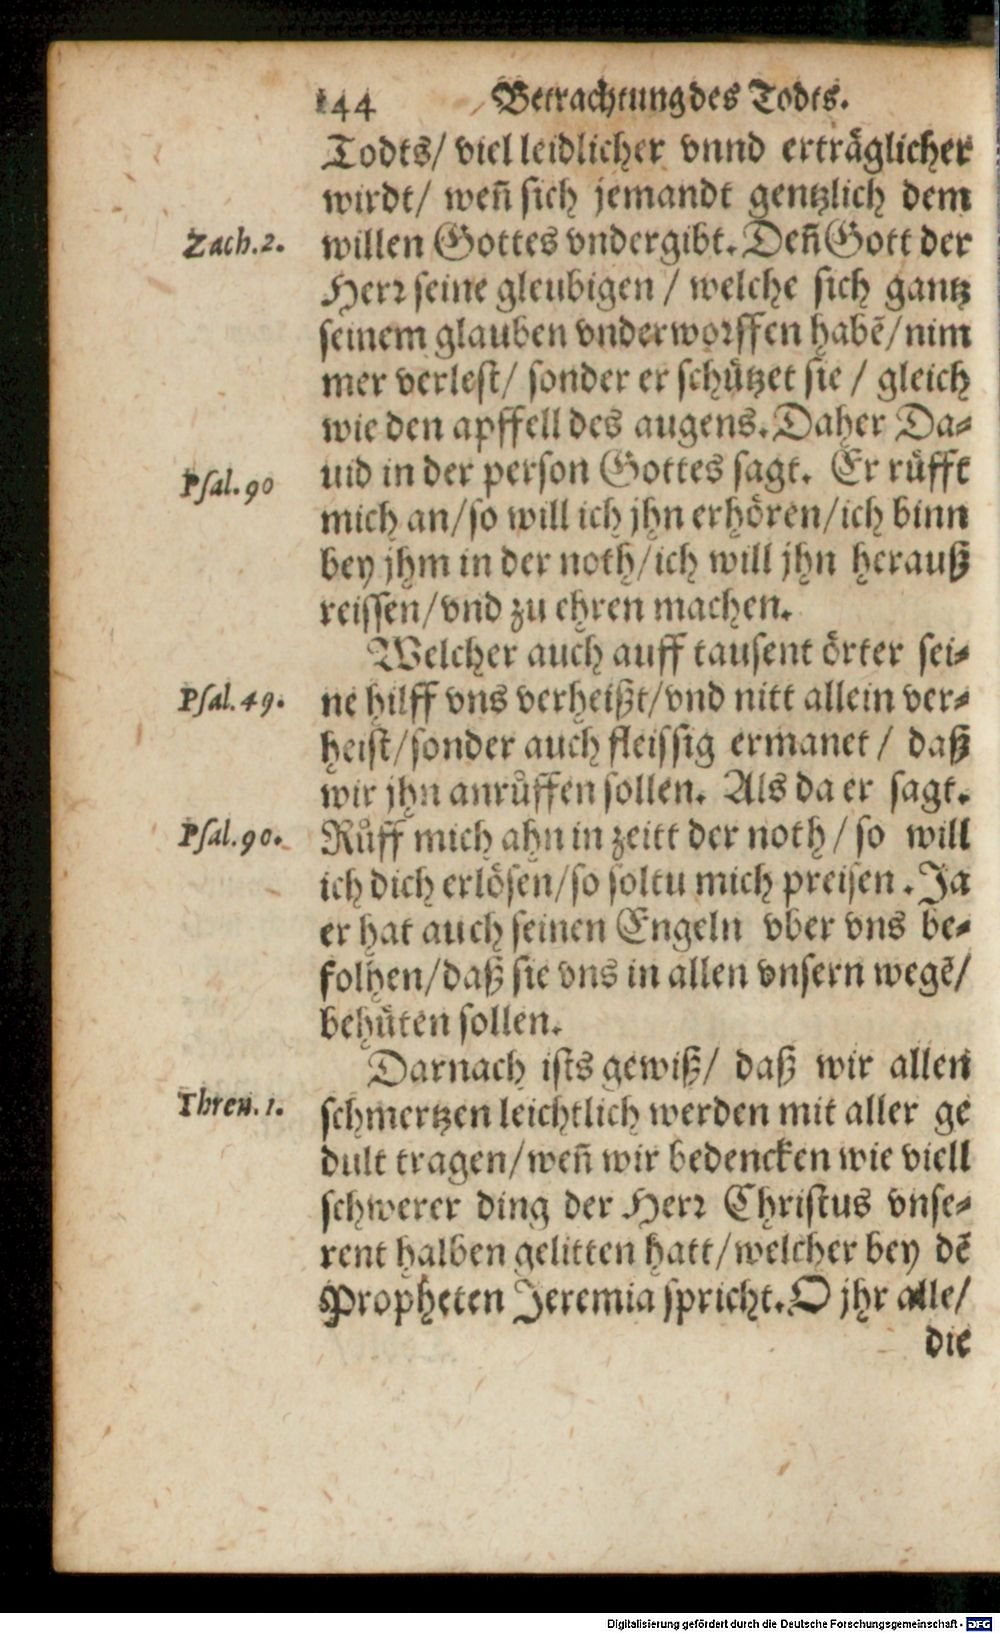 144 Betrachtung des Todts.
Todts/ viel leidlicher vnnd erträglicher
wirdt/ weñ sich jemandt gentzlich dem
Zach.2. willen Gottes vndergibt. Deñ Gott der
Herr seine gleubigen / welche sich gantz
seinem glauben vnderworffen habẽ/ nim
mer verlest/ sonder er schützet sie / gleich
wie den apffell des augens. Daher Da-
Psal.90 uid in der person Gottes sagt. Er rüfft
mich an/ so will ich jhn erhören/ ich binn
bey jhm in der noth/ ich will jhn herauß
reissen/ vnd zu ehren machen.
Welcher auch auff tausent örter sei-
Psal.49. ne hilff vns verheißt/ vnd nitt allein ver-
heist/ sonder auch fleissig ermanet / daß
wir jhn anrůffen sollen. Als da er sagt.
Psal.90. Růff mich ahn in zeitt der noth / so will
ich dich erlösen/ so soltu mich preisen. Ja
er hat auch seinen Engeln vber vns be-
folhen/ daß sie vns in allen vnsern wegẽ/
behüten sollen.
Darnach ists gewiß/ daß wir allen
Thren.1. schmertzen leichtlich werden mit aller ge
dult tragen/ weñ wir bedencken wie viell
schwerer ding der Herr Christus vnse-
rent halben gelitten hatt/ welcher bey dẽ
Propheten Jeremia spricht. O jhr alle/
die
Digitalisierung gefördert durch die Deutsche Forschungsgemeinschaft - DFG